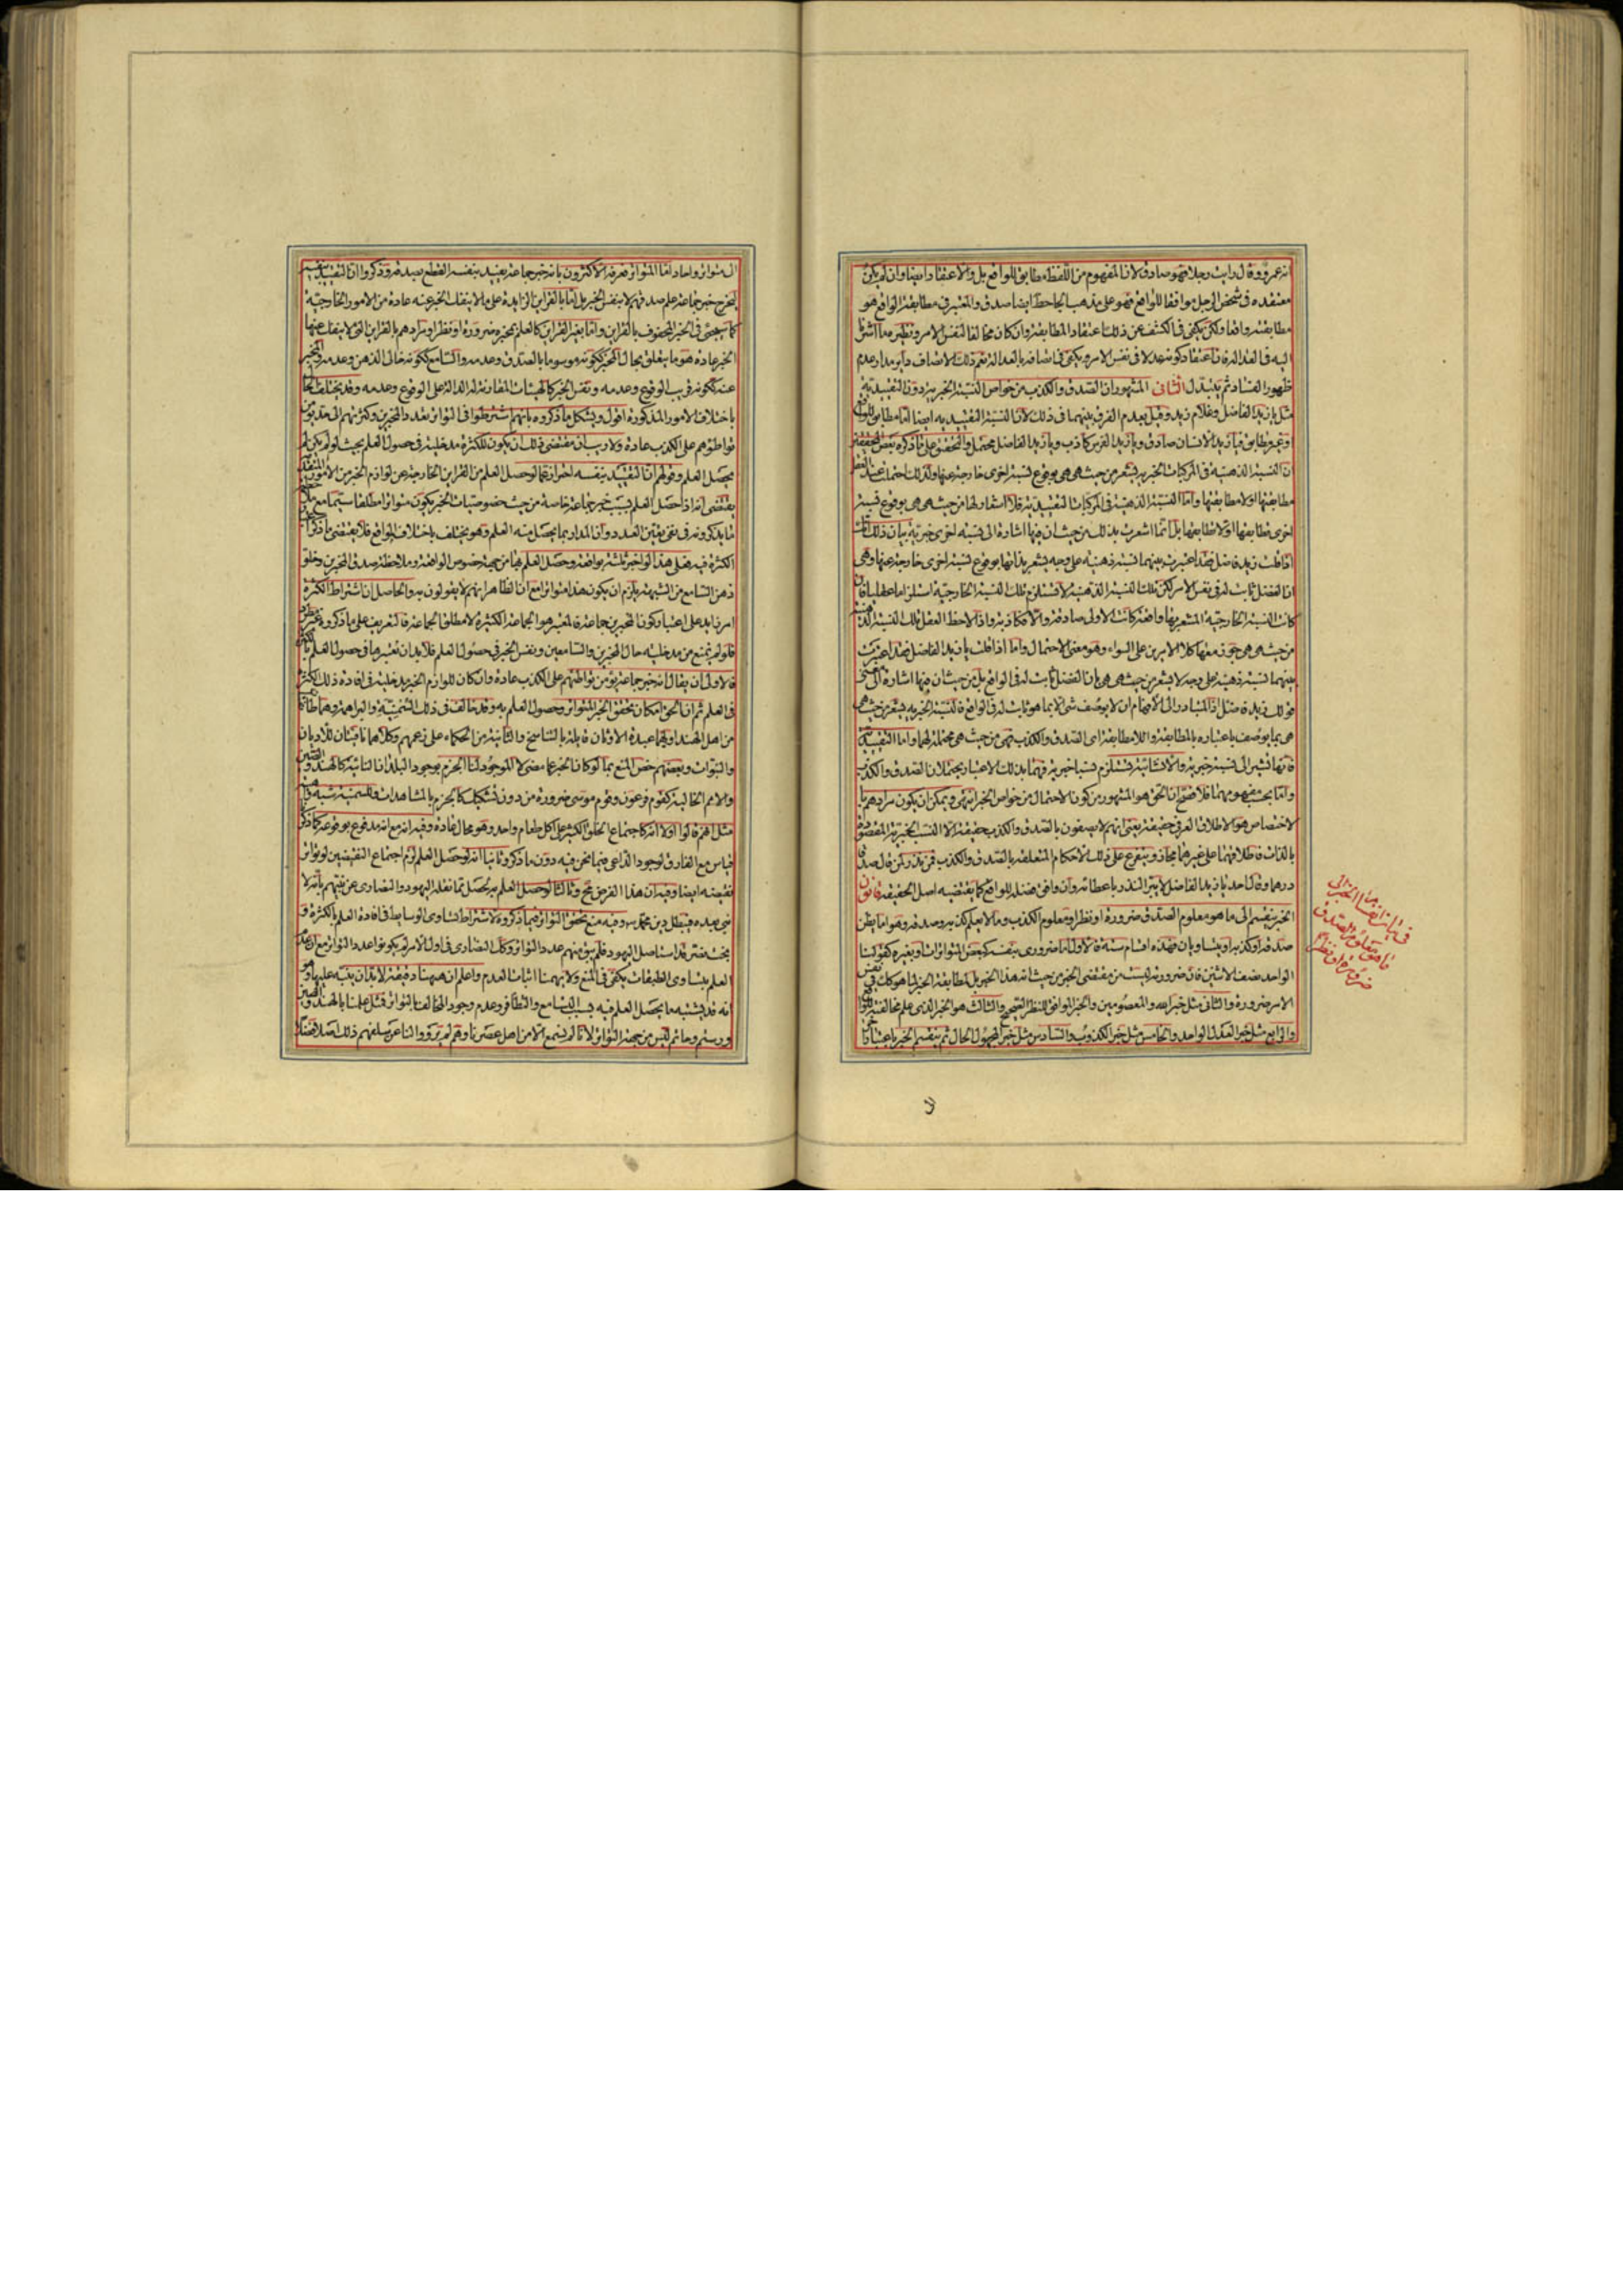 انه عمرو وقال رايت رجلا فهو صادق لان المفهوم من اللفظ مطابق للواقع بل والاعتقاد ايضا وان لم يكن
معتقده في شخص الرجل موافقا للواقع فهو على مذهب الجاحظ ايضا صدق والمعتبر في مطابقة الواقع هو
مطابقته واقعا ولكن يكفي في الكشف عن ذلك اعتقاد المطابقة وان كان مخالفا لنفس الامر ونظير ما اشرنا
اليه في العدالة فان اعتقاد كونه عدلا في نفس الامر يكفي في اتصافه بالعدالة نعم ذلك الاتصاف دائر مدار عدم
ظهور الفساد ثم يتبدل الثاني المشهور ان الصدق والكذب من خواص النسبة الخبرية دون التقييدية
مثل يا زيد الفاضل وغلام زيد وقيل بعدم الفرق بينهما في ذلك لان النسبة التقييدية ايضا اما مطابق للواقع
او غير مطابق فيا زيد الانسان صادق ويا زيد الفرس كاذب ويا زيد الفاضل محتمل والتحقيق على ما ذكره بعض المحققين
ان النسبة الذهنية في المركبات الخبرية يشعر من حيث هي هي بوقوع نسبة اخرى خارجة عنها ولذلك احتملت عند العقل
مطابقتها او لا مطابقتها واما النسبة الذهنية في المركبات التقييدية فلا اشعار لها من حيث هي هي بوقوع نسبة
اخرى تطابقها او لا تطابقها بل انما اشعرت بذلك من حيث ان فيها اشارة الى نسبة اخرى خبرية بيان ذلك انك
اذا قلت زيد فاضل فقد اعتبرت بينهما نسبة ذهنية على وجه يشعر بذاتها بوقوع نسبة اخرى خارجة عنها وهي
ان الفضل ثابت له في نفس الامر لكن تلك النسبة الذهنية لا تستلزم تلك النسبة الخارجية استلزاما عقليا فان
كانت النسبة الخارجية المشعر بها واقعة كانت الاولى صادقة والا فكاذبة واذا لاحظ العقل تلك النسبة الذهنية
من حيث هي هي جوز معها كلا الامرين على السواء وهو معنى الاحتمال واما اذا قلت يا زيد الفاضل فقد اعتبرت
بينهما نسبة ذهنية على وجه لا يشعر من حيث هي هي بان الفضل ثابت له في الواقع بل من حيث ان فيها اشارة الى معنى
قولك زيد فاضل اذ المتبادر الى الافهام ان لا يوصف شيء الا بما هو ثابت له في الواقع فالنسبة الخبرية يشعر من حيث هي
هي بما يوصف باعتباره بالمطابقة واللامطابقة اي الصدق والكذب فهي من حيث هي محتملة لهما واما التقييدية
فانها تشير الى نسبة خبرية والانشائية تستلزم نسبا خبرية فهما بذلك الاعتبار يحتملان الصدق والكذب
واما بحسب مفهومهما فلا فصح ان الحق هو المشهور من كون الاحتمال من خواص الخبر انتهى ويمكن ان يكون مرادهم با
لاختصاص هو الاطلاق العرفي حقيقة يعني انهم لا يصفون بالصدق والكذب حقيقة الا النسب الخبرية المقصودة
بالذات فاطلاقهما على غيرهما مجاز ويتفرع على ذلك الاحكام المتعلقة بالصدق والكذب فمن نذر لمن قال صدقا
درهما وقال احد يا زيد الفاضل لا يبر النذر باعطائه وان وافق فضله للواقع كما يقتضيه اصل الحقيقة قانون
الخبر ينقسم الى ما هو معلوم الصدق ضرورة او نظرا ومعلوم الكذب وما لا يعلم كذبه وصدقه وهو اما يظن
صدقه او كذبه او يتساويان فهذه اقسام ستة فالاول اما ضروري بنفسه كبعض المتواترات او بغيره كقولنا
الواحد نصف الاثنين فان ضروريته ليست من مقتضى الخبر من حيث انه هذا الخبر بل لمطابقة الخبر لما هو كك في نفس
الامر ضرورة والثاني مثل خبر الله والمعصومين والخبر الموافق للنظر الصحيح والثالث هو الخبر الذي علم مخالفته للواقع
والرابع مثل خبر العدل الواحد والخامس مثل خبر الكذوب والسادس مثل خبر المجهول الحال ثم ينقسم الخبر باعتبار
في بيان انقسام الخبر الى
ما هو معلوم الصدق
ضرورة او نظرا
ال متواتر واحاد اما المتواتر فعرفه الاكثرون بانه خبر جماعة يفيد بنفسه القطع بصدقه وذكروا ان التقييد بنفسه
ليخرج خبر جماعة علم صدقهم لا بنفس الخبر بل اما بالقراين الزايدة على ما لا ينفك الخبر عنه عادة من الامور الخارجية
كما سيجيء في الخبر المحفوف بالقراين واما بغير القراين كالعلم بخبره ضرورة او نظرا ومرادهم بالقراين التي لا ينفك عنها
الخبر عادة هو ما يتعلق بحال المخبر ككونه موسوما بالصدق وعدمه والسامع ككونه خالي الذهن وعدمه والمخبر
عنه ككونه قريب الوقوع وعدمه ونفس الخبر كالهيئات المقارنة له الدالة على الوقوع وعدمه وقد يختلف الحال
باختلاف الامور المذكورة اقول ويشكل ما ذكروه بانهم اشترطوا في التواتر تعدد المخبرين وكثرتهم الى حد يؤمن
تواطؤهم على الكذب عادة ولا ريب ان مقتضى ذلك ان يكون للكثرة مدخلية في حصول العلم بحيث لو لم يكن لم
يحصل العلم وقولهم ان التقييد بنفسه احتراز عما لو حصل العلم من القراين الخارجة عن لوازم الخبر من الامور المتقدمة
يقتضي انه اذا حصل العلم بسبب خبر جماعة خاصة من حيث خصوصيات الخبر يكون متواترا مطلقا سيما مع ملاحظة
ما يذكرونه في نفي تعيين العدد وان المدار بما يحصل منه العلم وهو يختلف باختلاف المواقع فلا يقتضي ما ذكروا
الكثرة فيه فعلى هذا لو اخبر ثلثة بواقعة وحصل العلم بها من جهة خصوص الواقعة وملاحظة صدق المخبرين وخلو
ذهن السامع من الشبهة يلزم ان يكون هذا متواترا مع ان الظاهر انهم لا يقولون به والحاصل ان اشتراط الكثرة
امر زايد على اعتبار كون المخبرين جماعة فالمعتبر هو الجماعة الكثيرة لا مطلق الجماعة فالتعريف على ما ذكروه غير مطرد
فلو لم نمنع من مدخلية حال المخبرين والسامعين ونفس الخبر في حصول العلم فلا بد ان نعتبرها في حصول العلم بالكثرة
فالاولى ان يقال انه خبر جماعة يؤمن تواطئهم على الكذب عادة وان كان للوازم الخبر مدخلية في افادة ذلك الكثرة
في العلم ثم ان الحق امكان تحقق الخبر المتواتر وحصول العلم به وقد خالف في ذلك السمنية والبراهمة وهما طائفتان
من اهل الهند اولهما عبدة الاوثان قايلة بالتناسخ والثانية من الحكماء على زعمهم وكلاهما نافيتان للاديان
والنبوات وبعضهم خص المنع بما لو كان الخبر عما مضى لا الموجود لنا الجزم بوجود البلدان النائية كالهند والصين
والامم الخالية كقوم فرعون وقوم موسى ضرورة من دون تشكيك كالجزم بالمشاهدات وللسمنية شبه واهية
مثل انهم قالوا اولا انه كاجتماع الخلق الكثير على اكل طعام واحد وهو محال عادة وفيه انه مع انه مدفوع بوقوعه كما ذكر
قياس مع الفارق لوجود الداعي فيما نحن فيه دون ما ذكر وثانيا انه لو حصل العلم لزم اجتماع النقيضين لو تواتر
نقيضه ايضا وفيه ان هذا الفرض مح وثالثا لو حصل العلم به لحصل بما نقله اليهود والنصارى عن نبيهم بانه لا
نبي بعده فيبطل دين محمد ص وفيه منع تحقق التواتر فيما ذكروه لاشتراط تساوي الوسايط في افادة العلم بالكثرة و
بخت نصر قد استاصل اليهود فلم يبق منهم عدد التواتر وكك النصارى في اول الامر لم يكونوا عدد التواتر مع ان عدم
العلم بتساوي الطبقات يكفي في المنع ولا يهمنا اثبات العدم واعلم ان هيهنا دقيقة لا بد ان ينبه عليها وهو
انه قد يشتبه ما يحصل العلم فيه بسبب التسامع والتظافر وعدم وجود المخالف بالتواتر فمثل علمنا بالهند والصين
ورستم وحاتم ليس من جهة التواتر لانا لم نسمع الا من اهل عصرنا وهم لم يرووا لنا عن سلفهم ذلك اصلا فضلا